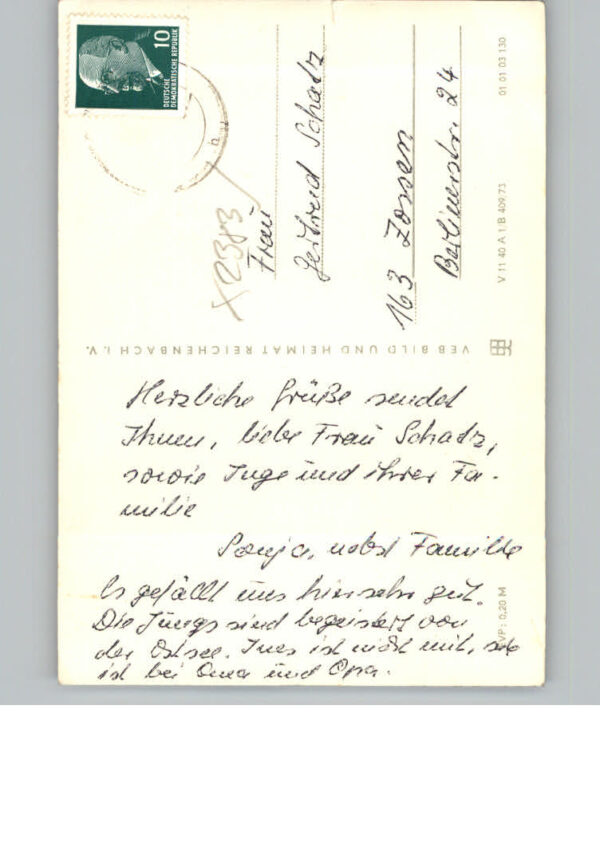 10
DEUTSCHE
DEMOKRATISCHE REPUBLIK
X2383
Frau
Gertrud Schatz
163 Zossen
Berlinerstr. 24
01 01 03 130
V 11 40 A 1/B 409/73
VEB BILD UND HEIMAT REICHENBACH I. V.
Herzliche Grüße sendet
Ihnen, liebe Frau Schatz,
sowie Inge und ihrer Fa-
milie
Sonja, nebst Familie
Es gefällt uns hier sehr gut.
Die Jungs sind begeistert von
der Ostsee. Ines ist nicht mit, sie
ist bei Oma und Opa.
VP: 0,20 M